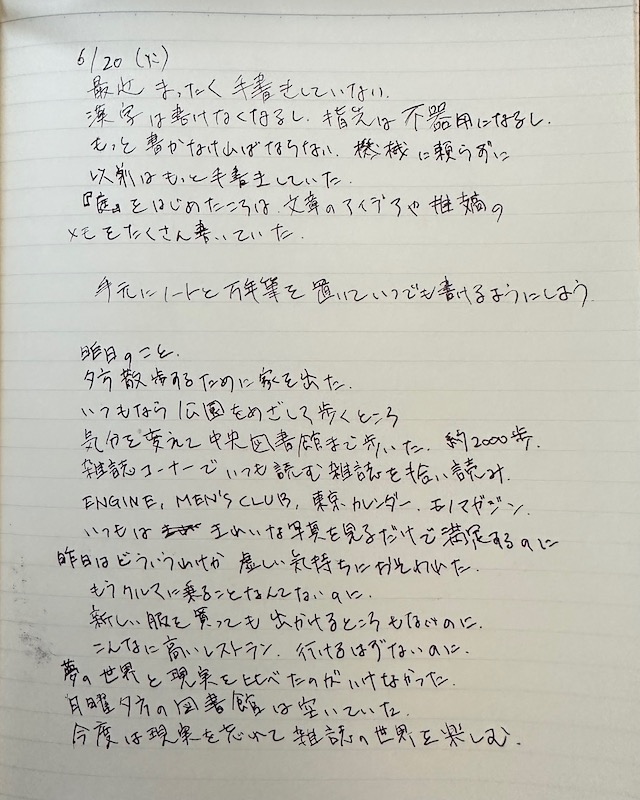 6/20 (火)
最近 まったく 手書きしていない.
漢字は書けなくなるし. 指先は 不器用になるし.
もっと 書かなければならない. 機械に頼らずに
以前はもっと手書きしていた.
『庭』をはじめたころは. 文章のアイデアや 推敲の
メモをたくさん書いていた.
手元にノートと万年筆を 置いていつでも書けるようにしよう
昨日のこと.
夕方散歩するために家を出た.
いつもなら 公園をめざして歩くところ
気分を変えて中央図書館まで歩いた. 約2000歩.
雑誌コーナーでいつも読む雑誌を拾い読み.
ENGINE, MEN'S CLUB, 東京カレンダー. モノマガジン.
いつもは きれいな写真を見るだけで満足するのに
昨日はどういうわけか 虚しい気持ちにおそわれた.
もうクルマに乗ることなんてないのに.
新しい服を買っても 出かけるところもないのに.
こんなに高いレストラン. 行けるはずないのに.
夢の世界と現実を比べたのがいけなかった.
日曜夕方の図書館は空いていた.
今度は現実を忘れて雑誌の世界を楽しむ.